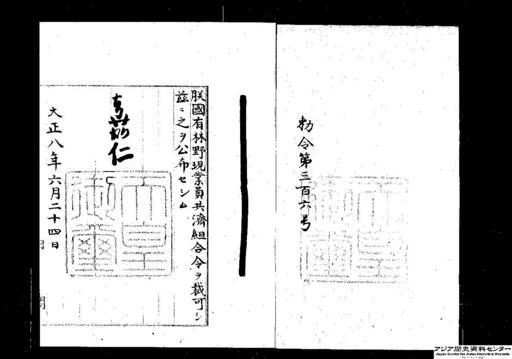 勅令第三百六号
朕國有林野現業員共濟組合令ヲ裁可シ
茲ニ之ヲ公布セシム
嘉仁
天皇御璽
大正八年六月二十四日
アジア歴史資料センター
Japan Center for Asian Historical Records